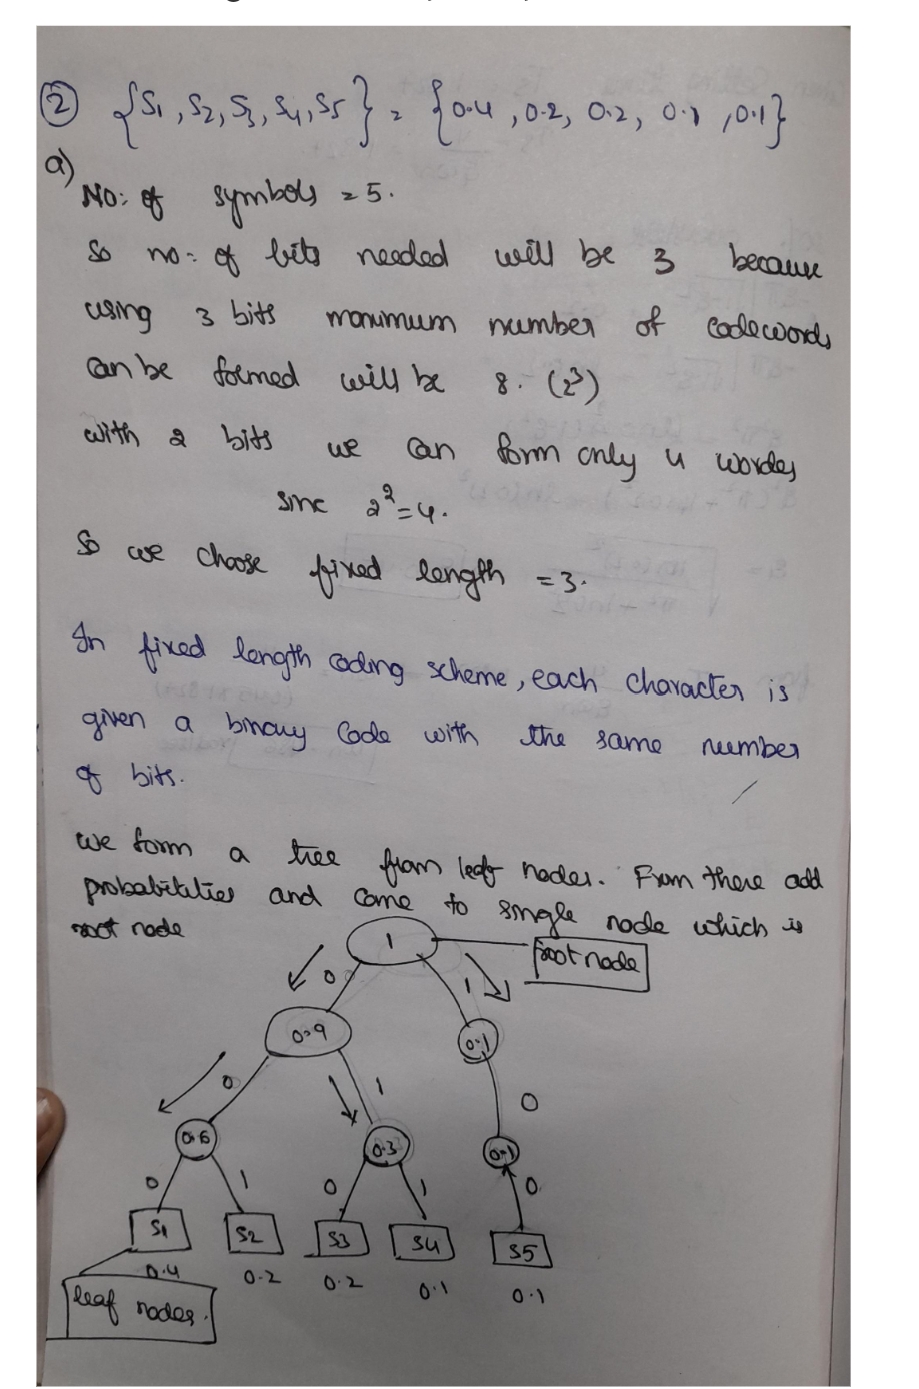 ② {S1, S2, S3, S4, S5} = {0.4, 0.2, 0.2, 0.1, 0.1}
a)
No: of symbols = 5.
So no: of bits needed will be 3 because
using 3 bits maximum number of codewords
can be formed will be 8. (2³)
with 2 bits we can form only 4 wordes
sinc 2² = 4.
So we choose fixed length = 3.
In fixed length coding scheme, each character is
given a binary code with the same number
of bits.
we form a tree from leaf nodes. From there add
probabilities and come to single node which is
root node
1
root node
0 1
0.9 0.1
0 1 0
0.6 0.3 0.1
0 1 0 1 0
S1 S2 S3 S4 S5
0.4 0.2 0.2 0.1 0.1
leaf nodes.